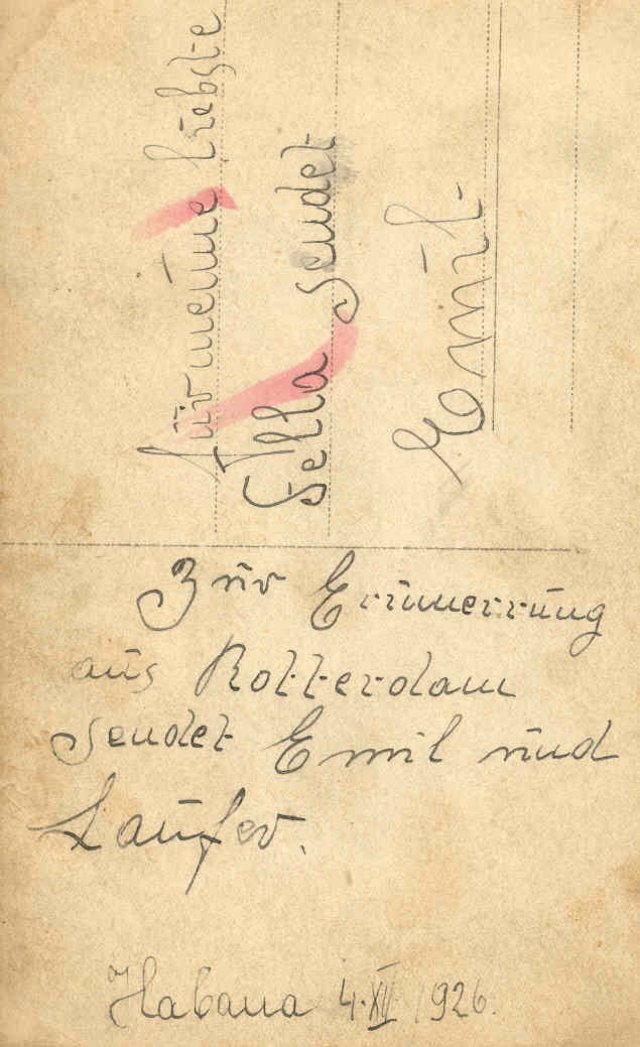 Für meine liebste
Sella sendet
Emil
Zur Erinnerrung
aus Rotterdam
sendet Emil und
Laufer.
Habana 4.XII 1926.